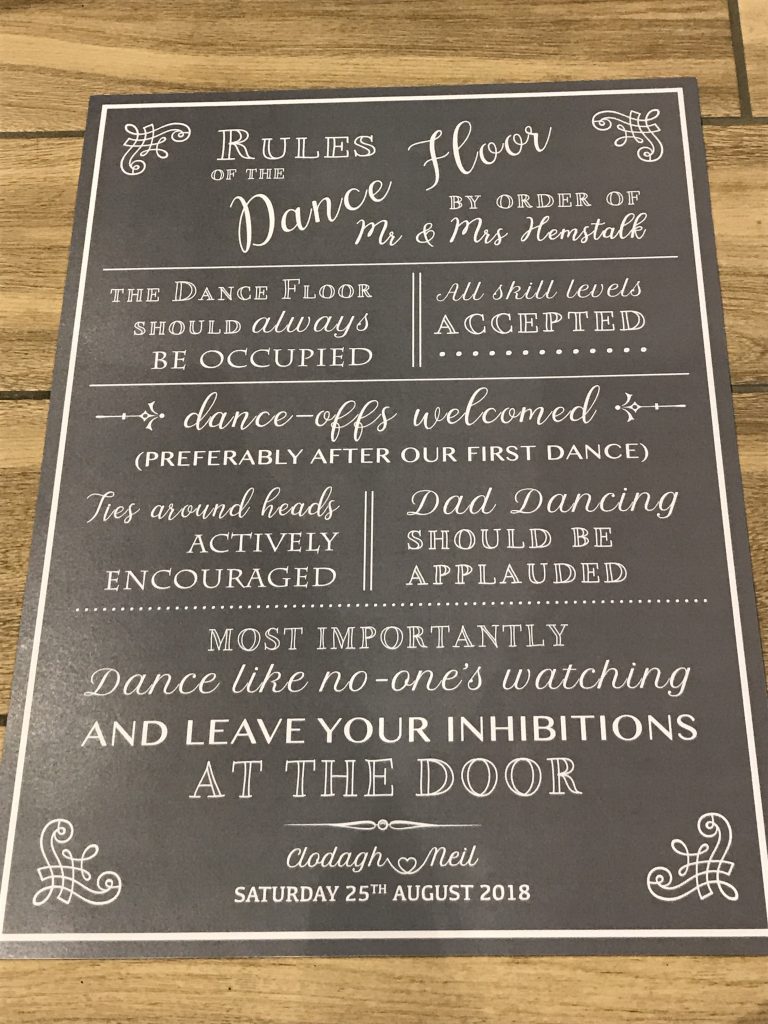 RULES
OF THE
Dance Floor
BY ORDER OF
Mr & Mrs Hemstalk
THE DANCE FLOOR
SHOULD always
BE OCCUPIED
All skill levels
ACCEPTED
dance-offs welcomed
(PREFERABLY AFTER OUR FIRST DANCE)
Ties around heads
ACTIVELY
ENCOURAGED
Dad Dancing
SHOULD BE
APPLAUDED
MOST IMPORTANTLY
Dance like no-one's watching
AND LEAVE YOUR INHIBITIONS
AT THE DOOR
Clodagh Neil
SATURDAY 25TH AUGUST 2018